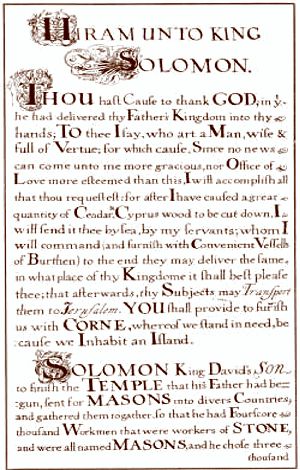 HIRAM UNTO KING
SOLOMON.
THOU hast Cause to thank GOD, in yt
he had delivered thy Father's Kingdom into thy
hands; TO thee I say, who art a Man, wise &
full of Vertue; for which cause, Since no news
can come unto me more gracious, nor Office of
Love more esteemed than this, I will accomplish all
that thou requestest: for after I have caused a great
quantity of Ceadar, Cyprus wood to be cut down, I
will send it thee by sea, by my servants; whom I
will command (and furnish with Convenient Vessells
of Burthen) to the end they may deliver the same,
in what place of thy Kingdome it shall best please
thee; that afterwards, thy Subjects may Transport
them to Jerusalem. YOU shall provide to furnish
us with CORNE, whereof we stand in need, be
cause we Inhabit an Island.
SOLOMON King David's Son
to finish the TEMPLE that his Father had be=
gun, sent for MASONS into divers Countries,
and gathered them together. so that he had Fourscore
thousand Workmen that were workers of STONE,
and were all named MASONS, and he chose three
thousand